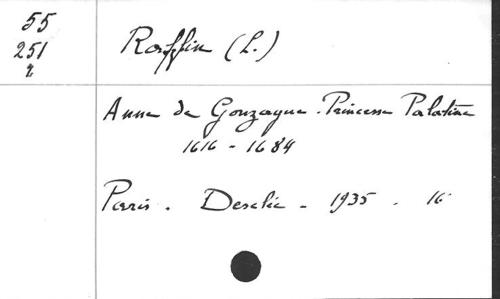 55
251
Raffin (L.)
Anne de Gonzague. Princesse Palatine
1616 - 1684
Paris. Desclée - 1935. 16